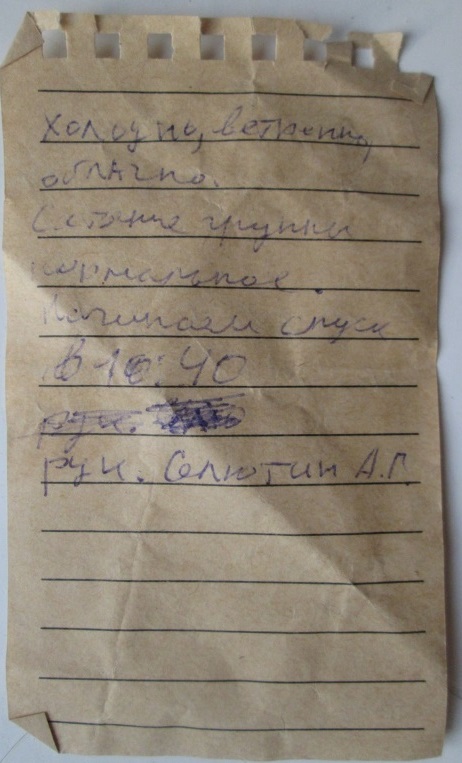 холодно, ветренно,
облачно.
Состояние группы
нормальное.
Начинаем спуск
в 16:40
рук.
рук. Селютин А.Г.